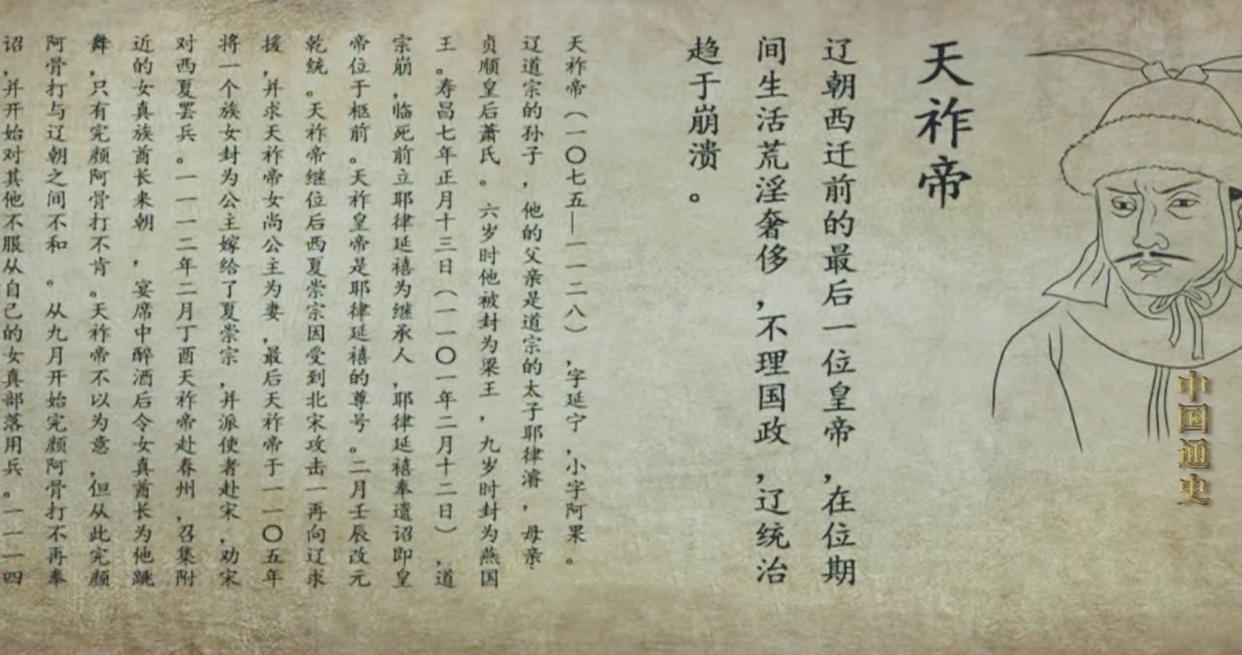 天祚帝
辽朝西迁前的最后一位皇帝,在位期
间生活荒淫奢侈,不理国政,辽统治
趋于崩溃。
天祚帝(一〇七五—一一二八),字延宁,小字阿果。
辽道宗的孙子,他的父亲是道宗的太子耶律濬,母亲
贞顺皇后萧氏。六岁时他被封为梁王,九岁时封为燕国
王。寿昌七年正月十三日(一一〇一年二月十二日),道
宗崩,临死前立耶律延禧为继承人,耶律延禧奉遗诏即皇
帝位于柩前。天祚皇帝是耶律延禧的尊号。二月壬辰改元
乾统。天祚帝继位后西夏崇宗因受到北宋攻击一再向辽求
援,并求天祚帝女尚公主为妻,最后天祚帝于一一〇五年
将一个族女封为公主嫁给了夏崇宗,并派使者赴宋,劝宋
对西夏罢兵。一一一二年二月丁酉天祚帝赴春州,召集附
近的女真族酋长来朝,宴席中醉酒后令女真酋长为他跳
舞,只有完颜阿骨打不肯。天祚帝不以为意,但从此完颜
阿骨打与辽朝之间不和。从九月开始完颜阿骨打不再奉
诏,并开始对其他不服从自己的女真部落用兵。一一一四
中国通史